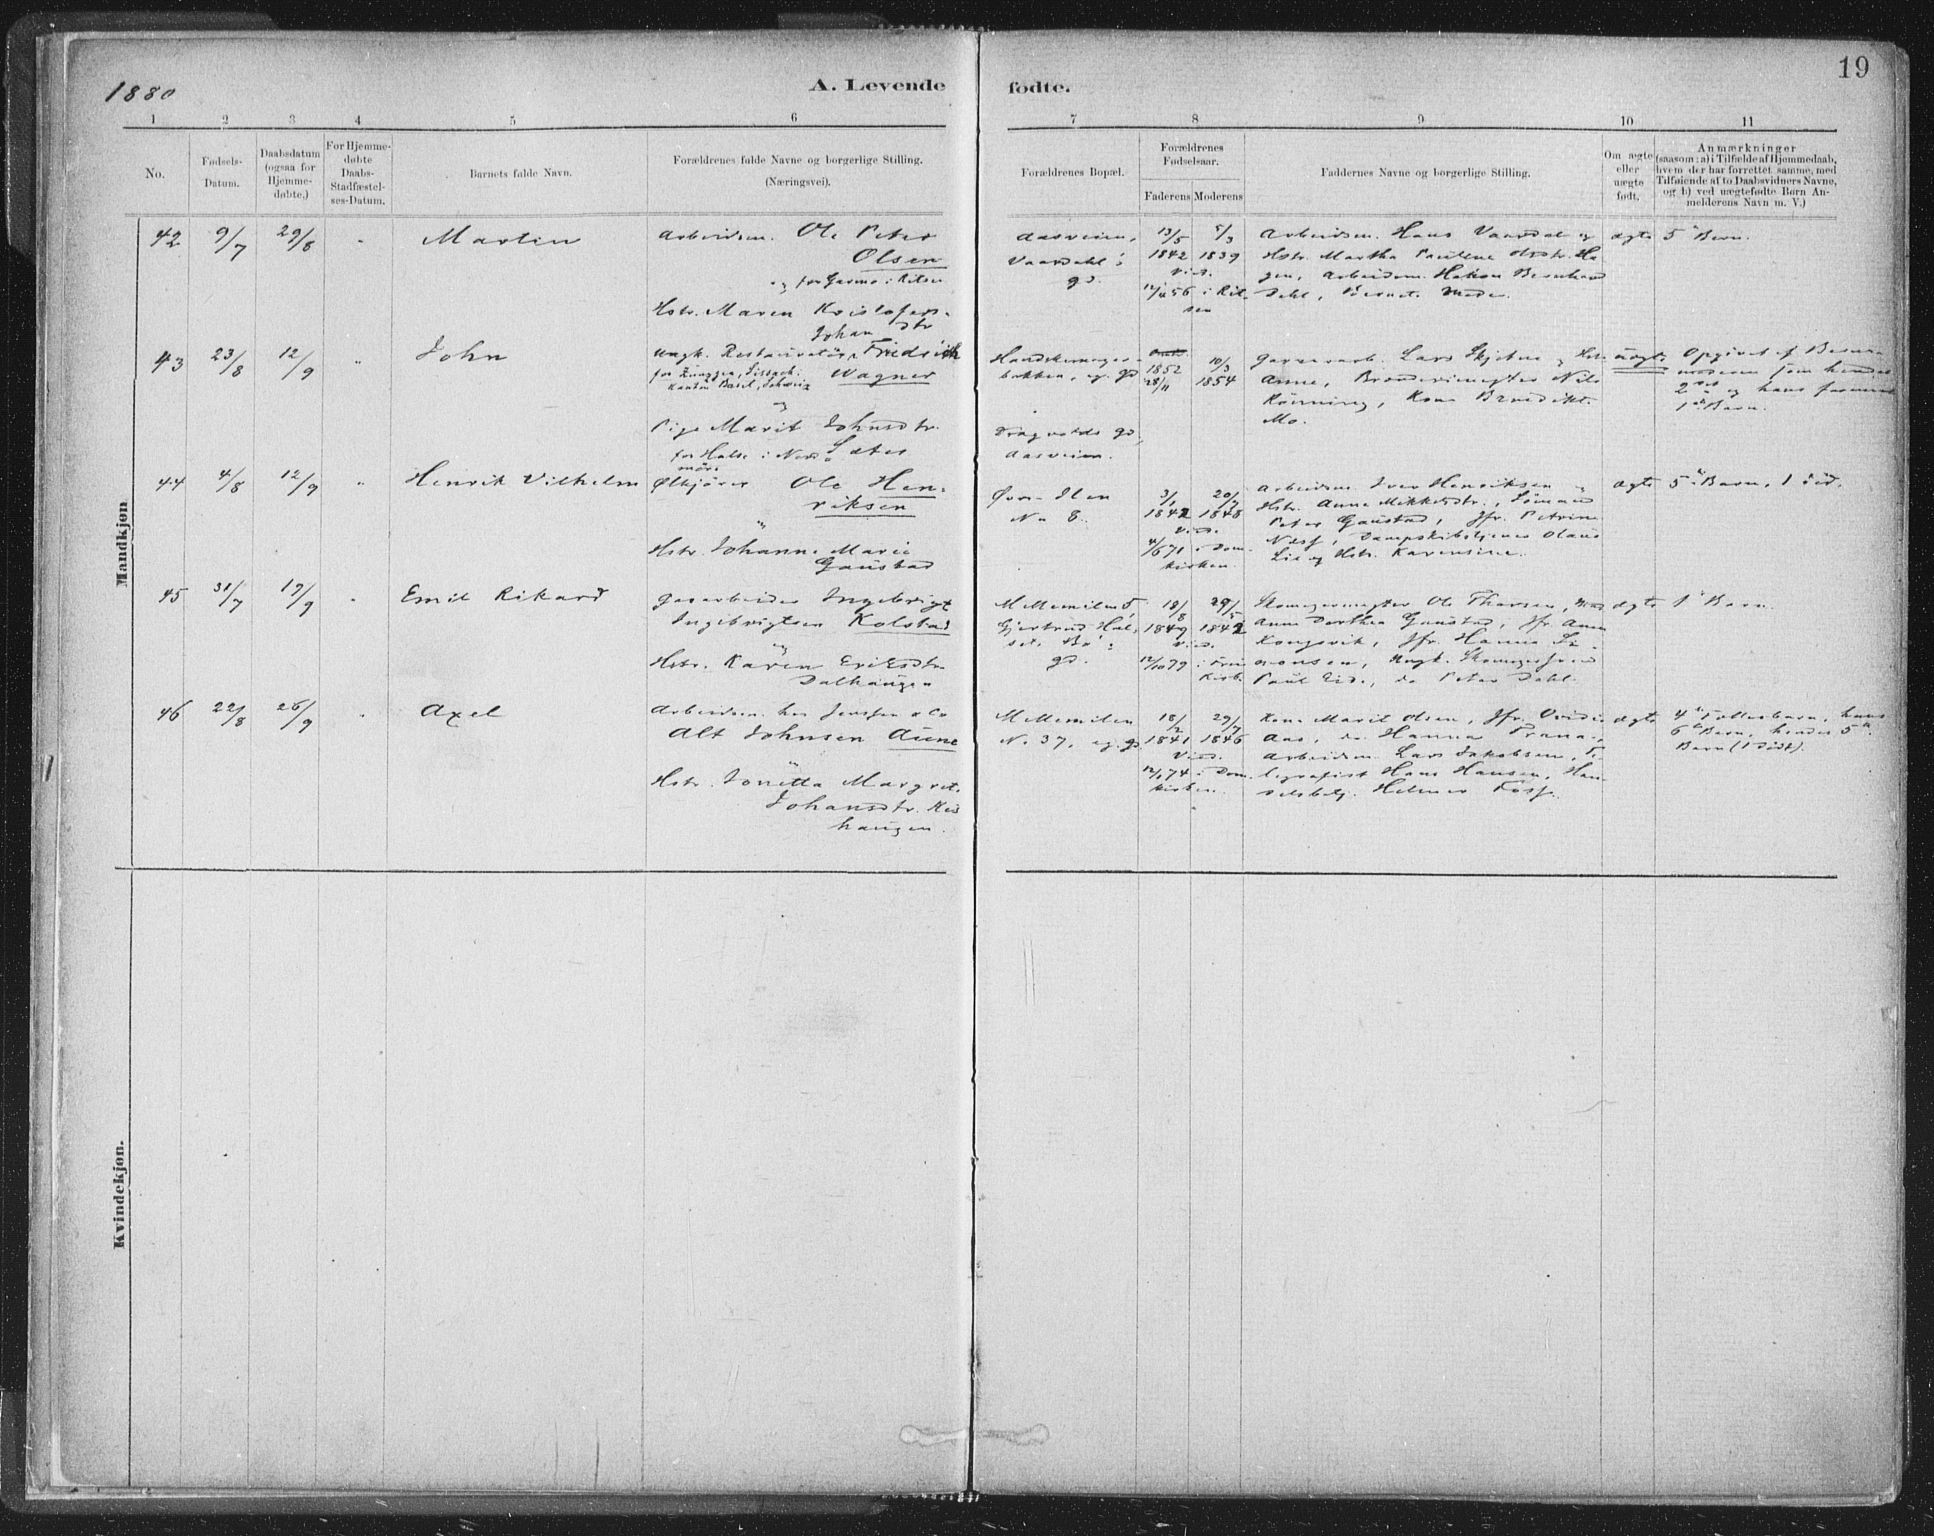 1880
A. Levende fødte.
19
1 2 3 4 5 6 7 8 9 10 11
No.
Fødsels-
Datum.
Daabsdatum
(ogsaa for
Hjemme-
døbte.)
For Hjemme-
døbte
Daabs-
Stadfæstel-
ses-Datum.
Barnets fulde Navn.
Forældrenes fulde Navne og borgerlige Stilling.
(Næringsvei).
Forældrenes Bopæl.
Forældrenes
Fødselsaar.
Faderens Moderens
Faddernes Navne og borgerlige Stilling.
Om ægte
eller
uægte
født.
Anmærkninger
(saasom: a) i Tilfælde af Hjemmedaab,
hvem der har forrettet samme, med
Tilføiende af to Daabsvidners Navne,
og b) ved uægtefødte Børn An-
melderens Navn m. V.)
Mandkjøn
42 9/7 29/8 " Martin
Arbeidsm. Ole Peter
Olsen
og
Hstr. Maren Kristofers-
dtr
Aasveien,
Vaardahls
gd.
13/5 5/3
1842 1839
Vied.
Arbeidsm. Hans Vaardal og
Hstr. Martha Pauline Hstr. Ha-
gen, Arbeidsm. Hakon Bernhard
Dahl, Barnets Moder.
ægte
5te Barn.
43 23/8 12/9 " John
Ungk. Restauratør Fredrich
Kanton Basel, Schweiz Wagner
og
Pige Marit Johnsdtr.
for Halse i Nord- Sæter
møre
Handskemager-
bakken, eg. gd
Dragvolds gd,
Aasveien.
1852 10/3
28/11 1854
Garverarb. Lars Skjetne og Hstr.
Anne, Brænderimester Nils
Rönning, Kone Benedikte
Mo.
uægte
Opgivet af Barne-
moderen som hendes
2det og hans
1ste Barn.
44 4/8 12/9 " Henrik Vilhelm
Ølkjører Ole Hen-
riksen
og
Hstr. Johanne Marie
Gaustad
Øvre Ilen
No 8.
3/1 20/7
1842 1848
Vied.
4/6 71 i Dom-
kirken.
Arbeidsm. Iver Henriksen og
Hstr. Anne Mikkelsdtr., Sömand
Peter Gaustad, Jfr. Petrine
Næss, Dampskibstjener Olaus
Lie og Hstr. Karensine.
ægte
5te Barn, 1 död.
45 31/7 19/9 " Emil Rikard
Gasarbeider Ingebrigt
Ingebrigtsen Kolstad
og
Hstr. Karen Eriksdtr.
Dalhaugen
Mellemilen 5,
Gjertrud Hal-
set,
gd.
18/8 29/5
1849 1842
Vied.
12/10 79 i Frue
Kirke.
Skomagermester Ole Thorsen, Mad.
Anne Dorthea Gaustad, Jfr. Anne
Kongsvik, Jfr. Hanna Si-
monsen, Ungk. Skomagersvend
Paul Eide, do Peter Dahl.
ægte
1ste Barn.
46 22/8 26/9 " Axel
Arbeidsm. hos Jenssen & Co
Alf Johnsen Aune
og
Hstr. Jonetta Margret.
Johansdtr. Rei
haugen.
Mellemilen
No. 37, eg. gd
18/2 29/7
1841 1846
Vied.
12/1 74 i Dom-
kirken.
Kone Marit Olsen, Jfr. Ovidia
Aas, do Hanna Frana,
Arbeidsm. Lars Jakobsen, Te-
legrafist Hans Hansen, Han-
delsbetj. Helmer Foss.
ægte
4de Fællesbarn, hans
6te Barn, hendes 5te
Barn (1 død).
Kvindekjøn.